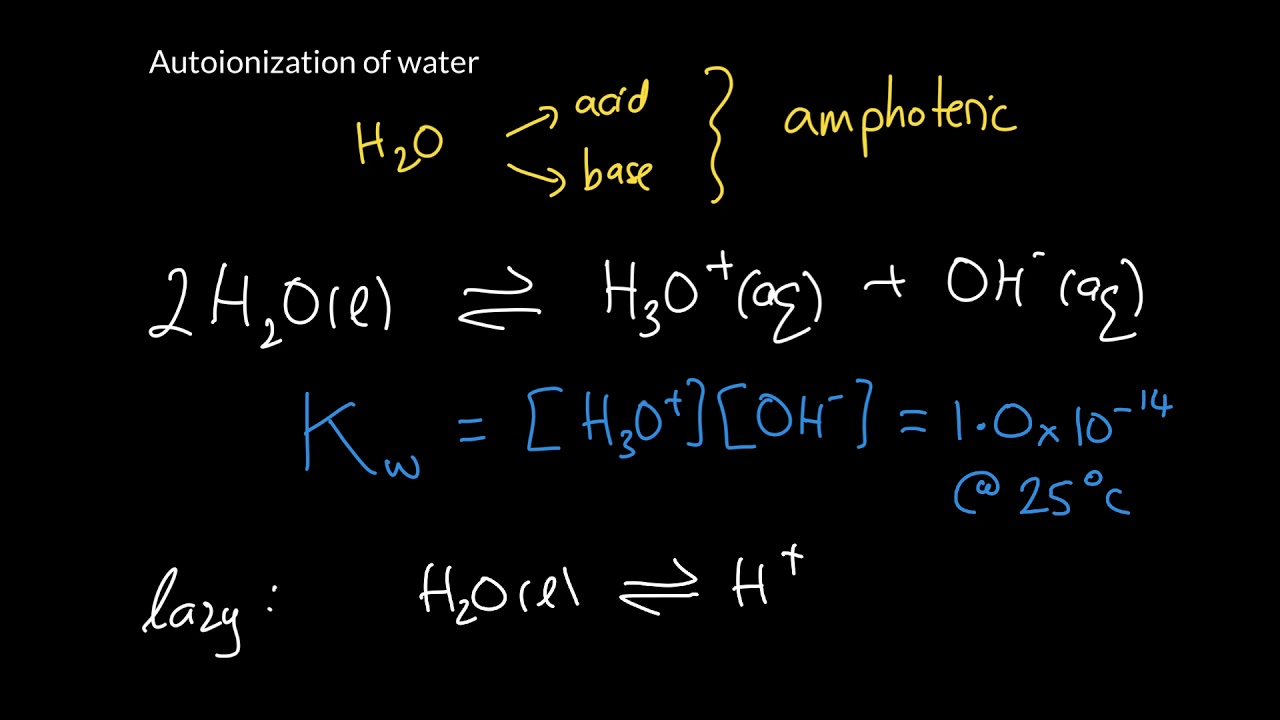 Autoionization of water
H₂O → acid } amphoteric
→ base
2H₂O(l) ⇌ H₃O⁺(aq) + OH⁻(aq)
K_w = [H₃O⁺][OH⁻] = 1.0 x 10⁻¹⁴
@ 25°C
lazy: H₂O(l) ⇌ H⁺